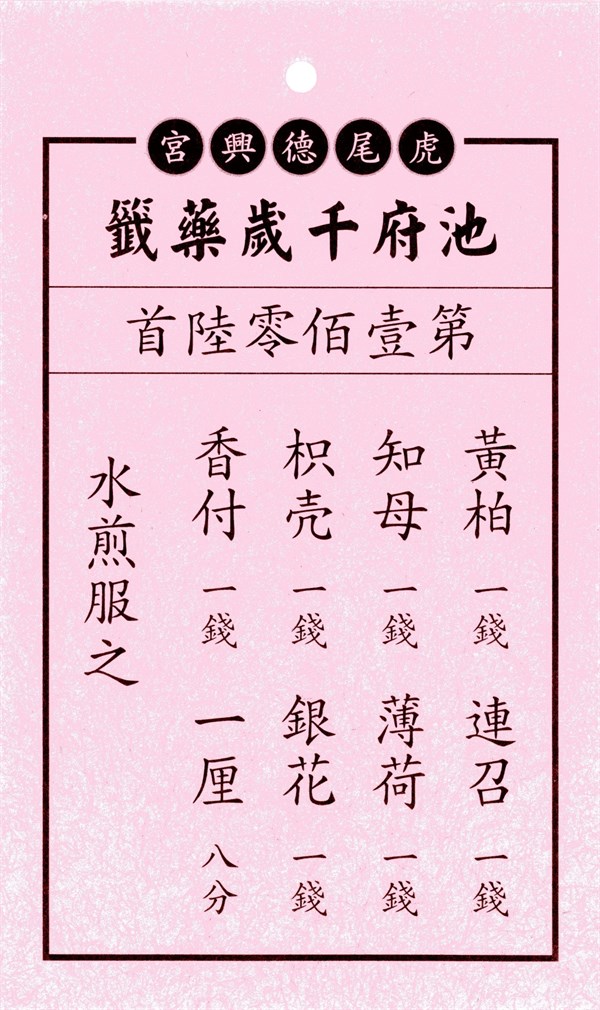 虎尾德興宮
池府千歲藥籤
第壹佰零陸首
黃柏 一錢 連召 一錢
知母 一錢 薄荷 一錢
枳壳 一錢 銀花 一錢
香付 一錢 一厘 八分
水煎服之